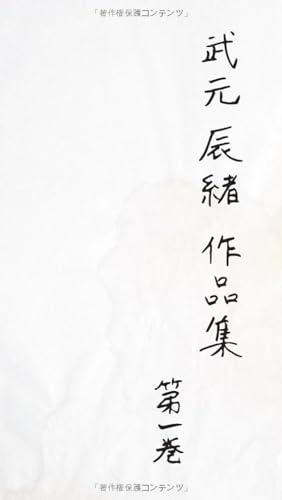 「著作権保護コンテンツ」
武元 辰緒 作品集
第一巻
「著作権保護コンテンツ」